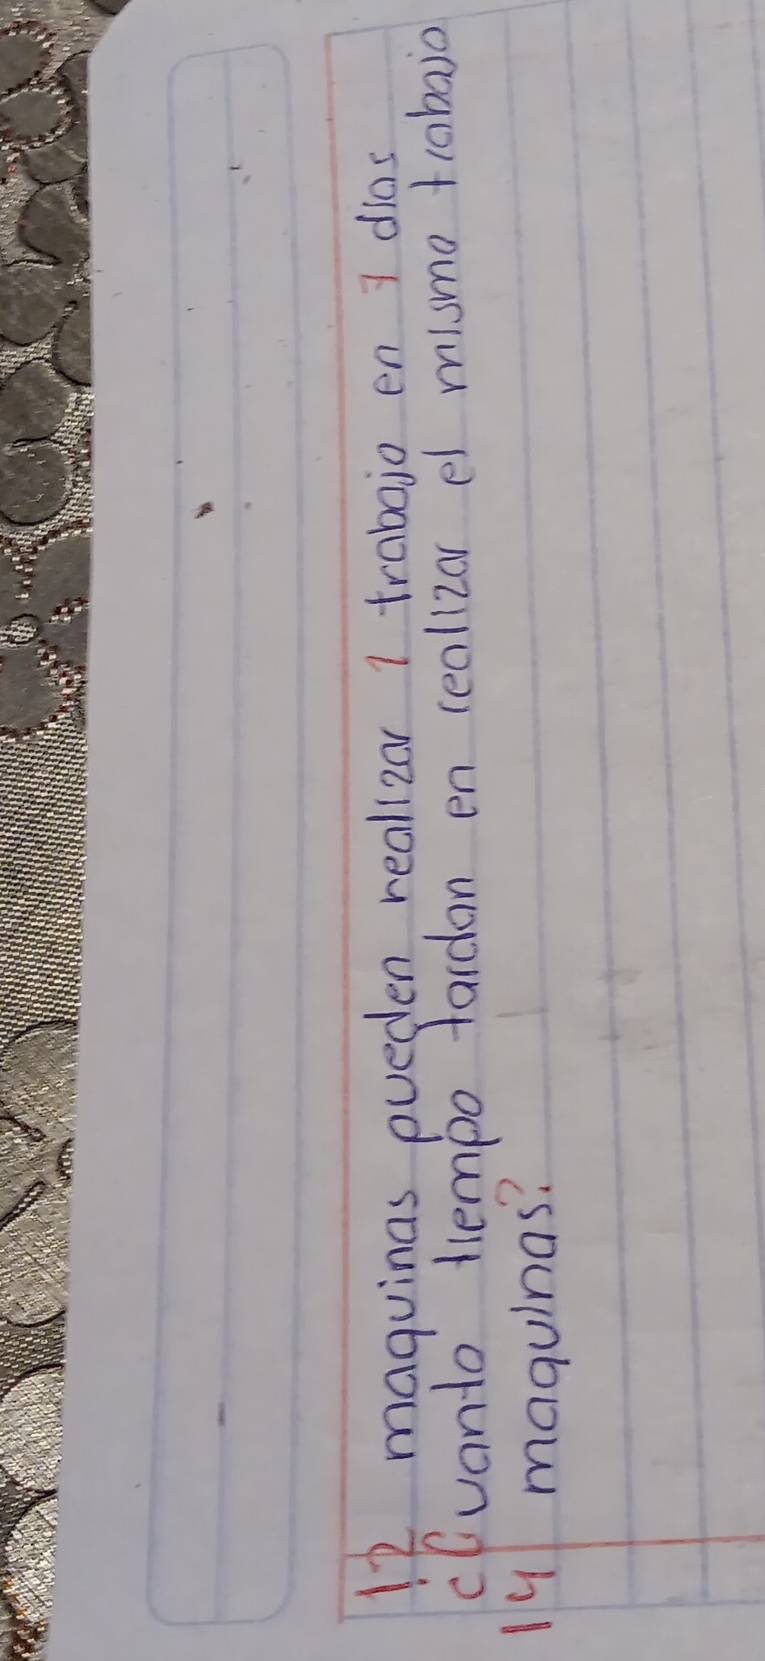 12 maquinas pueden realizar 1 trabajo en 7 dias
¿Cuanto tiempo tardan en realizar el mismo trabajo
14 maquinas?